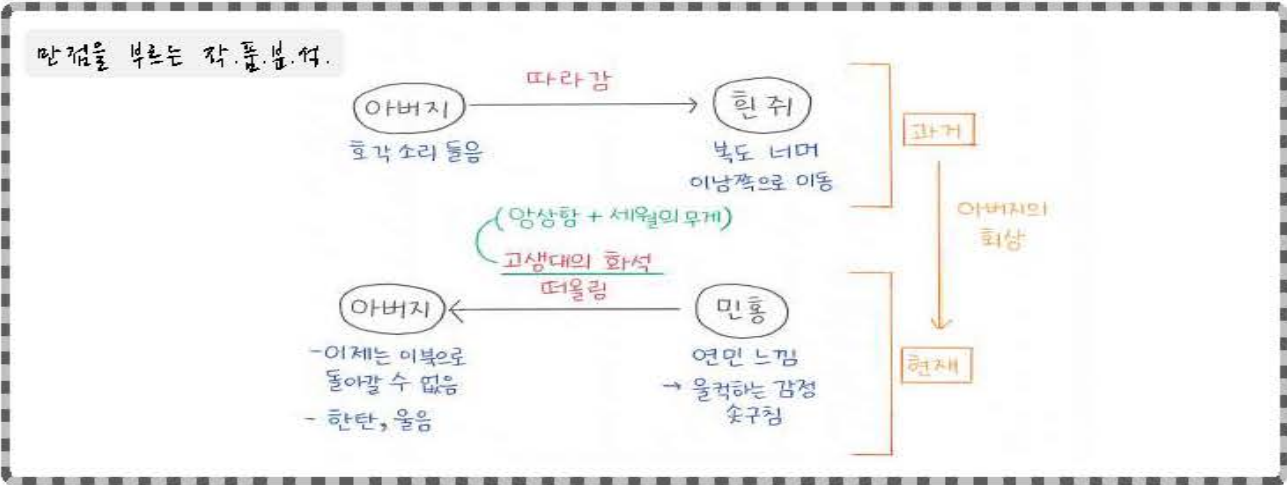 만점을 부르는 작.품.분.석.
아버지
따라감
흰 쥐
호각 소리 들음
복도 너머
이남쪽으로 이동
과거
아버지의
회상
(앙상함 + 세월의 무게)
고생대의 화석
떠올림
아버지
민홍
-이제는 이북으로
돌아갈 수 없음
- 한탄, 울음
연민 느낌
→ 울컥하는 감정
솟구침
현재